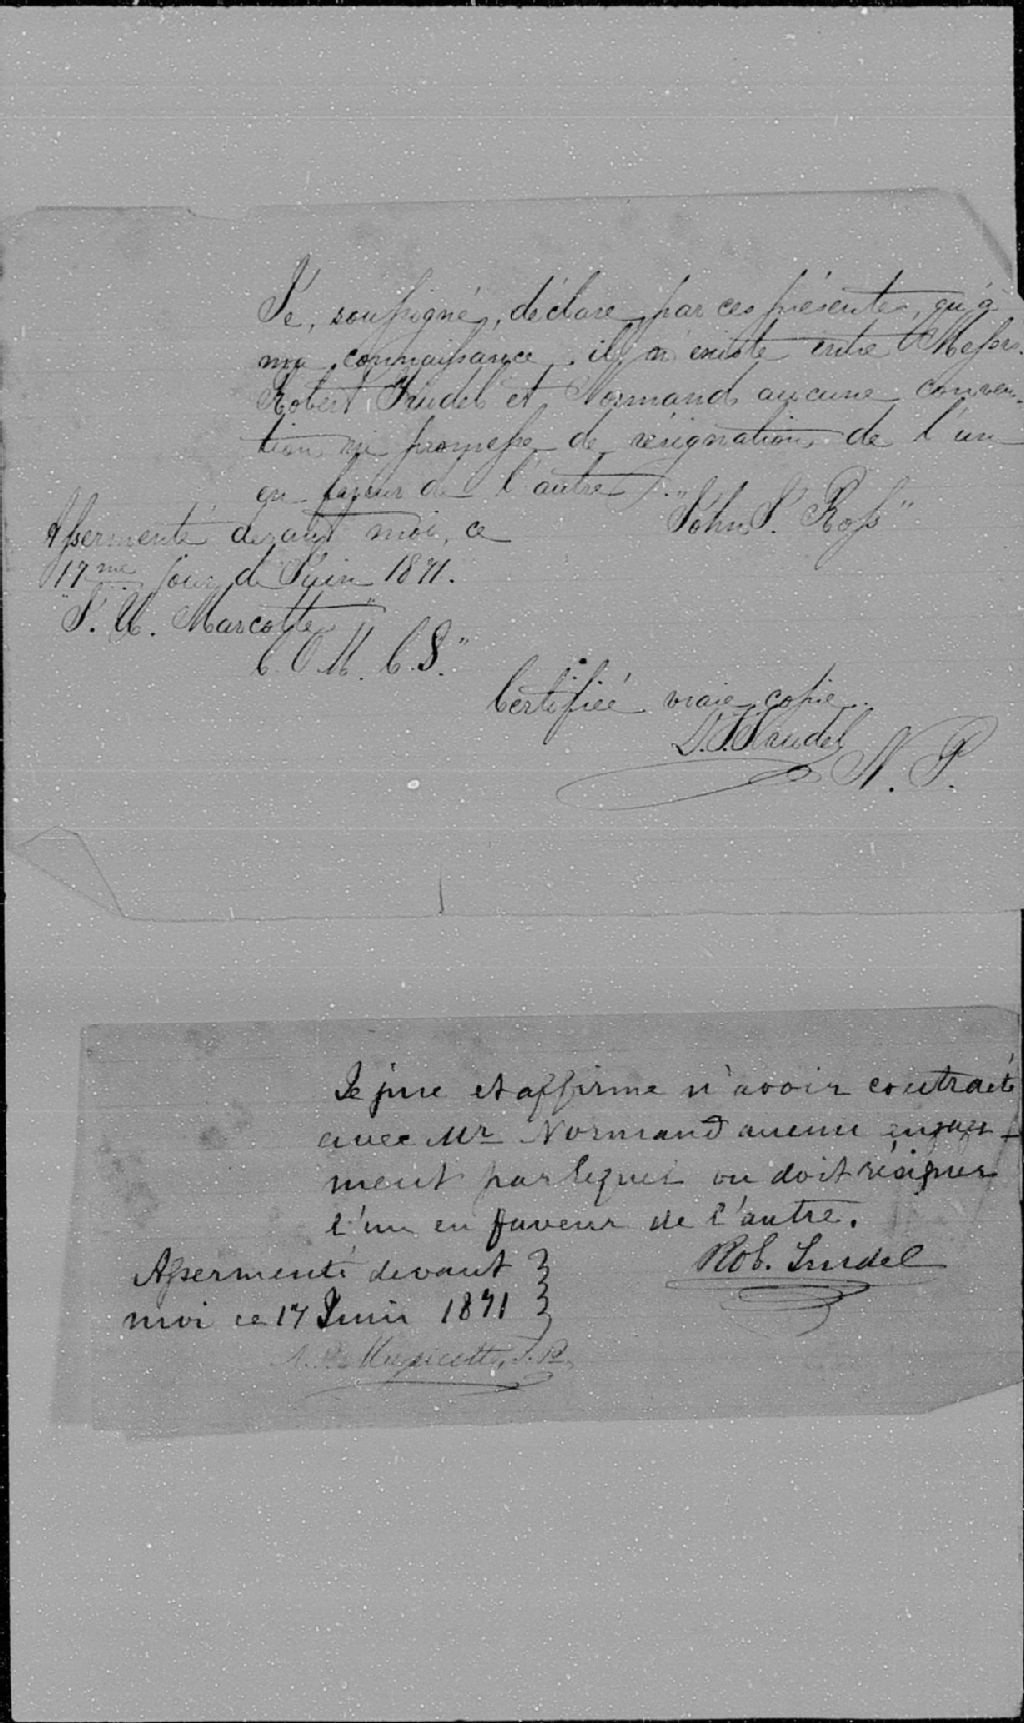 Je, soussigné, déclare par ces présentes, qu'à
ma connaissance, il n'existe entre Messrs.
Robert Trudel et Normand aucune conven-
tion ni promesse de résignation de l'un
en faveur de l'autre.
"John J. Ross"
Assermenté devant moi, ce
17me jour de Juin 1871.
"J. U. Marcotte
C. C. M. C. S."
Certifiée vraie copie
D. T. Trudel N. P.
Je jure et affirme n'avoir contracté
avec Mr Normand aucun engage-
ment par lequel on doit résigner
l'un en faveur de l'autre.
Rob. Trudel
Assermenté devant
moi ce 17 Juin 1871